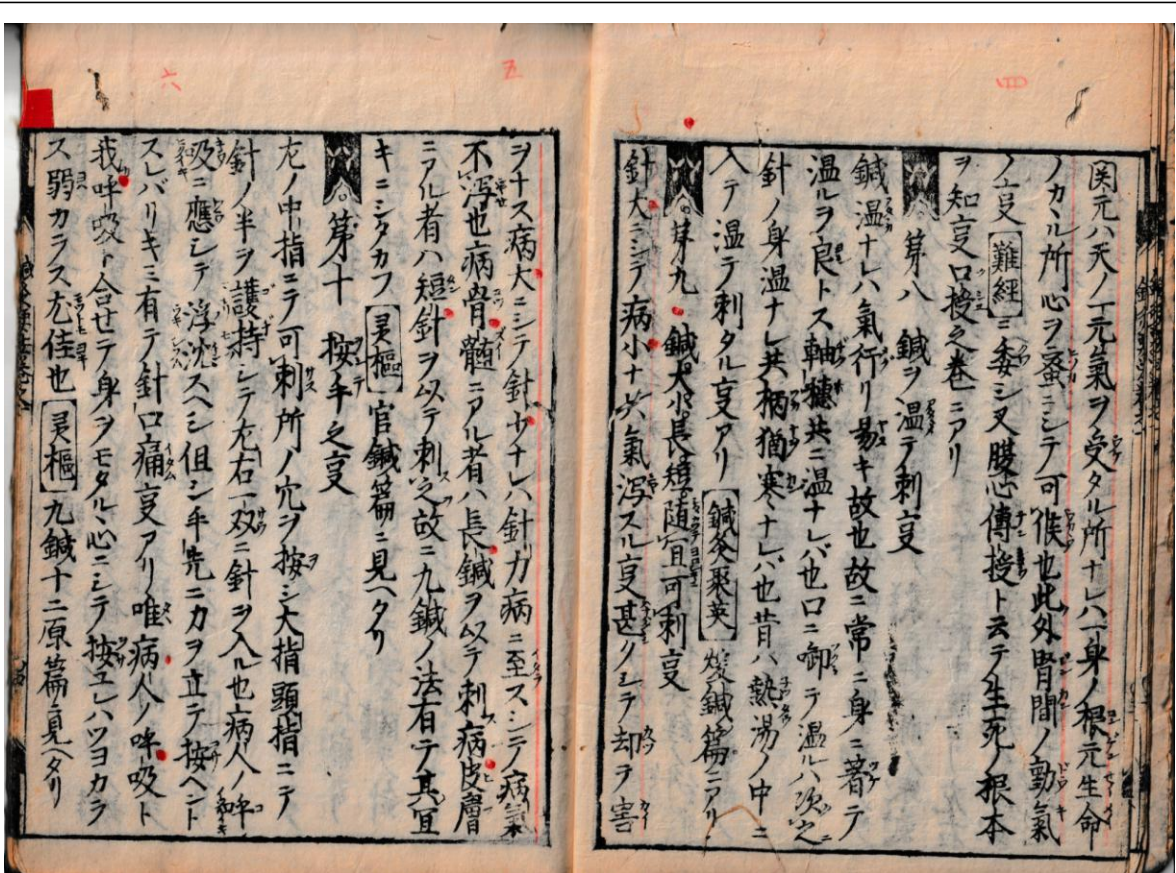 関元ハ天ノ一元氣ヲ受タル所ナレハ一身ノ根元生命
ノカヽル所心ヲ蜜ニシテ可候也此外腎間ノ動氣
ノ亊難経ニ委シ又腹心傳授ト云テ生死ノ根本
ヲ知亊口授之巻ニアリ
第八 鍼ヲ温テ刺亊
鍼温ナレハ氣行リ易キ故也故ニ常ニ身ニ著テ
温ルヲ良トス軸穂共ニ温ナレバ也口ニ啣テ温ルハ次之
針ノ身温ナレ共柄猶寒ナレバ也昔ハ熱湯ノ中ニ
入テ温テ刺タル亊アリ鍼灸聚英煖鍼篇ニアリ
第九 鍼大小長短随宜可刺亊
針大ニシテ病小ナレハ氣瀉スル亊甚クシテ却テ害
ヲナス病大ニシテ針小ナレハ針力病ニ至スシテ病氣
不瀉也病骨髄ニアル者ハ長鍼ヲ以テ刺病皮膚
ニアル者ハ短針ヲ以テ刺之故ニ九鍼ノ法有テ其宜
キニシタカフ灵樞官鍼篇ニ見ヘタリ
第十 按手之亊
左ノ中指ニテ可刺所ノ穴ヲ按シ大指頭指ニテ
針ノ半ヲ護持シテ左右一双ニ針ヲ入ル也病人ノ呼
吸ニ應シテ浮沈スヘシ但シ手先ニカヲ立テ按ヘント
スレバリキミ有テ針口痛亊アリ唯病人ノ呼吸ト
我呼吸ト合せテ身ヲモタルヽ心ニシテ按エレハツヨカラ
ス弱カラス尤佳也灵樞九鍼十二原篇ニ見ヘタリ
四
五
六